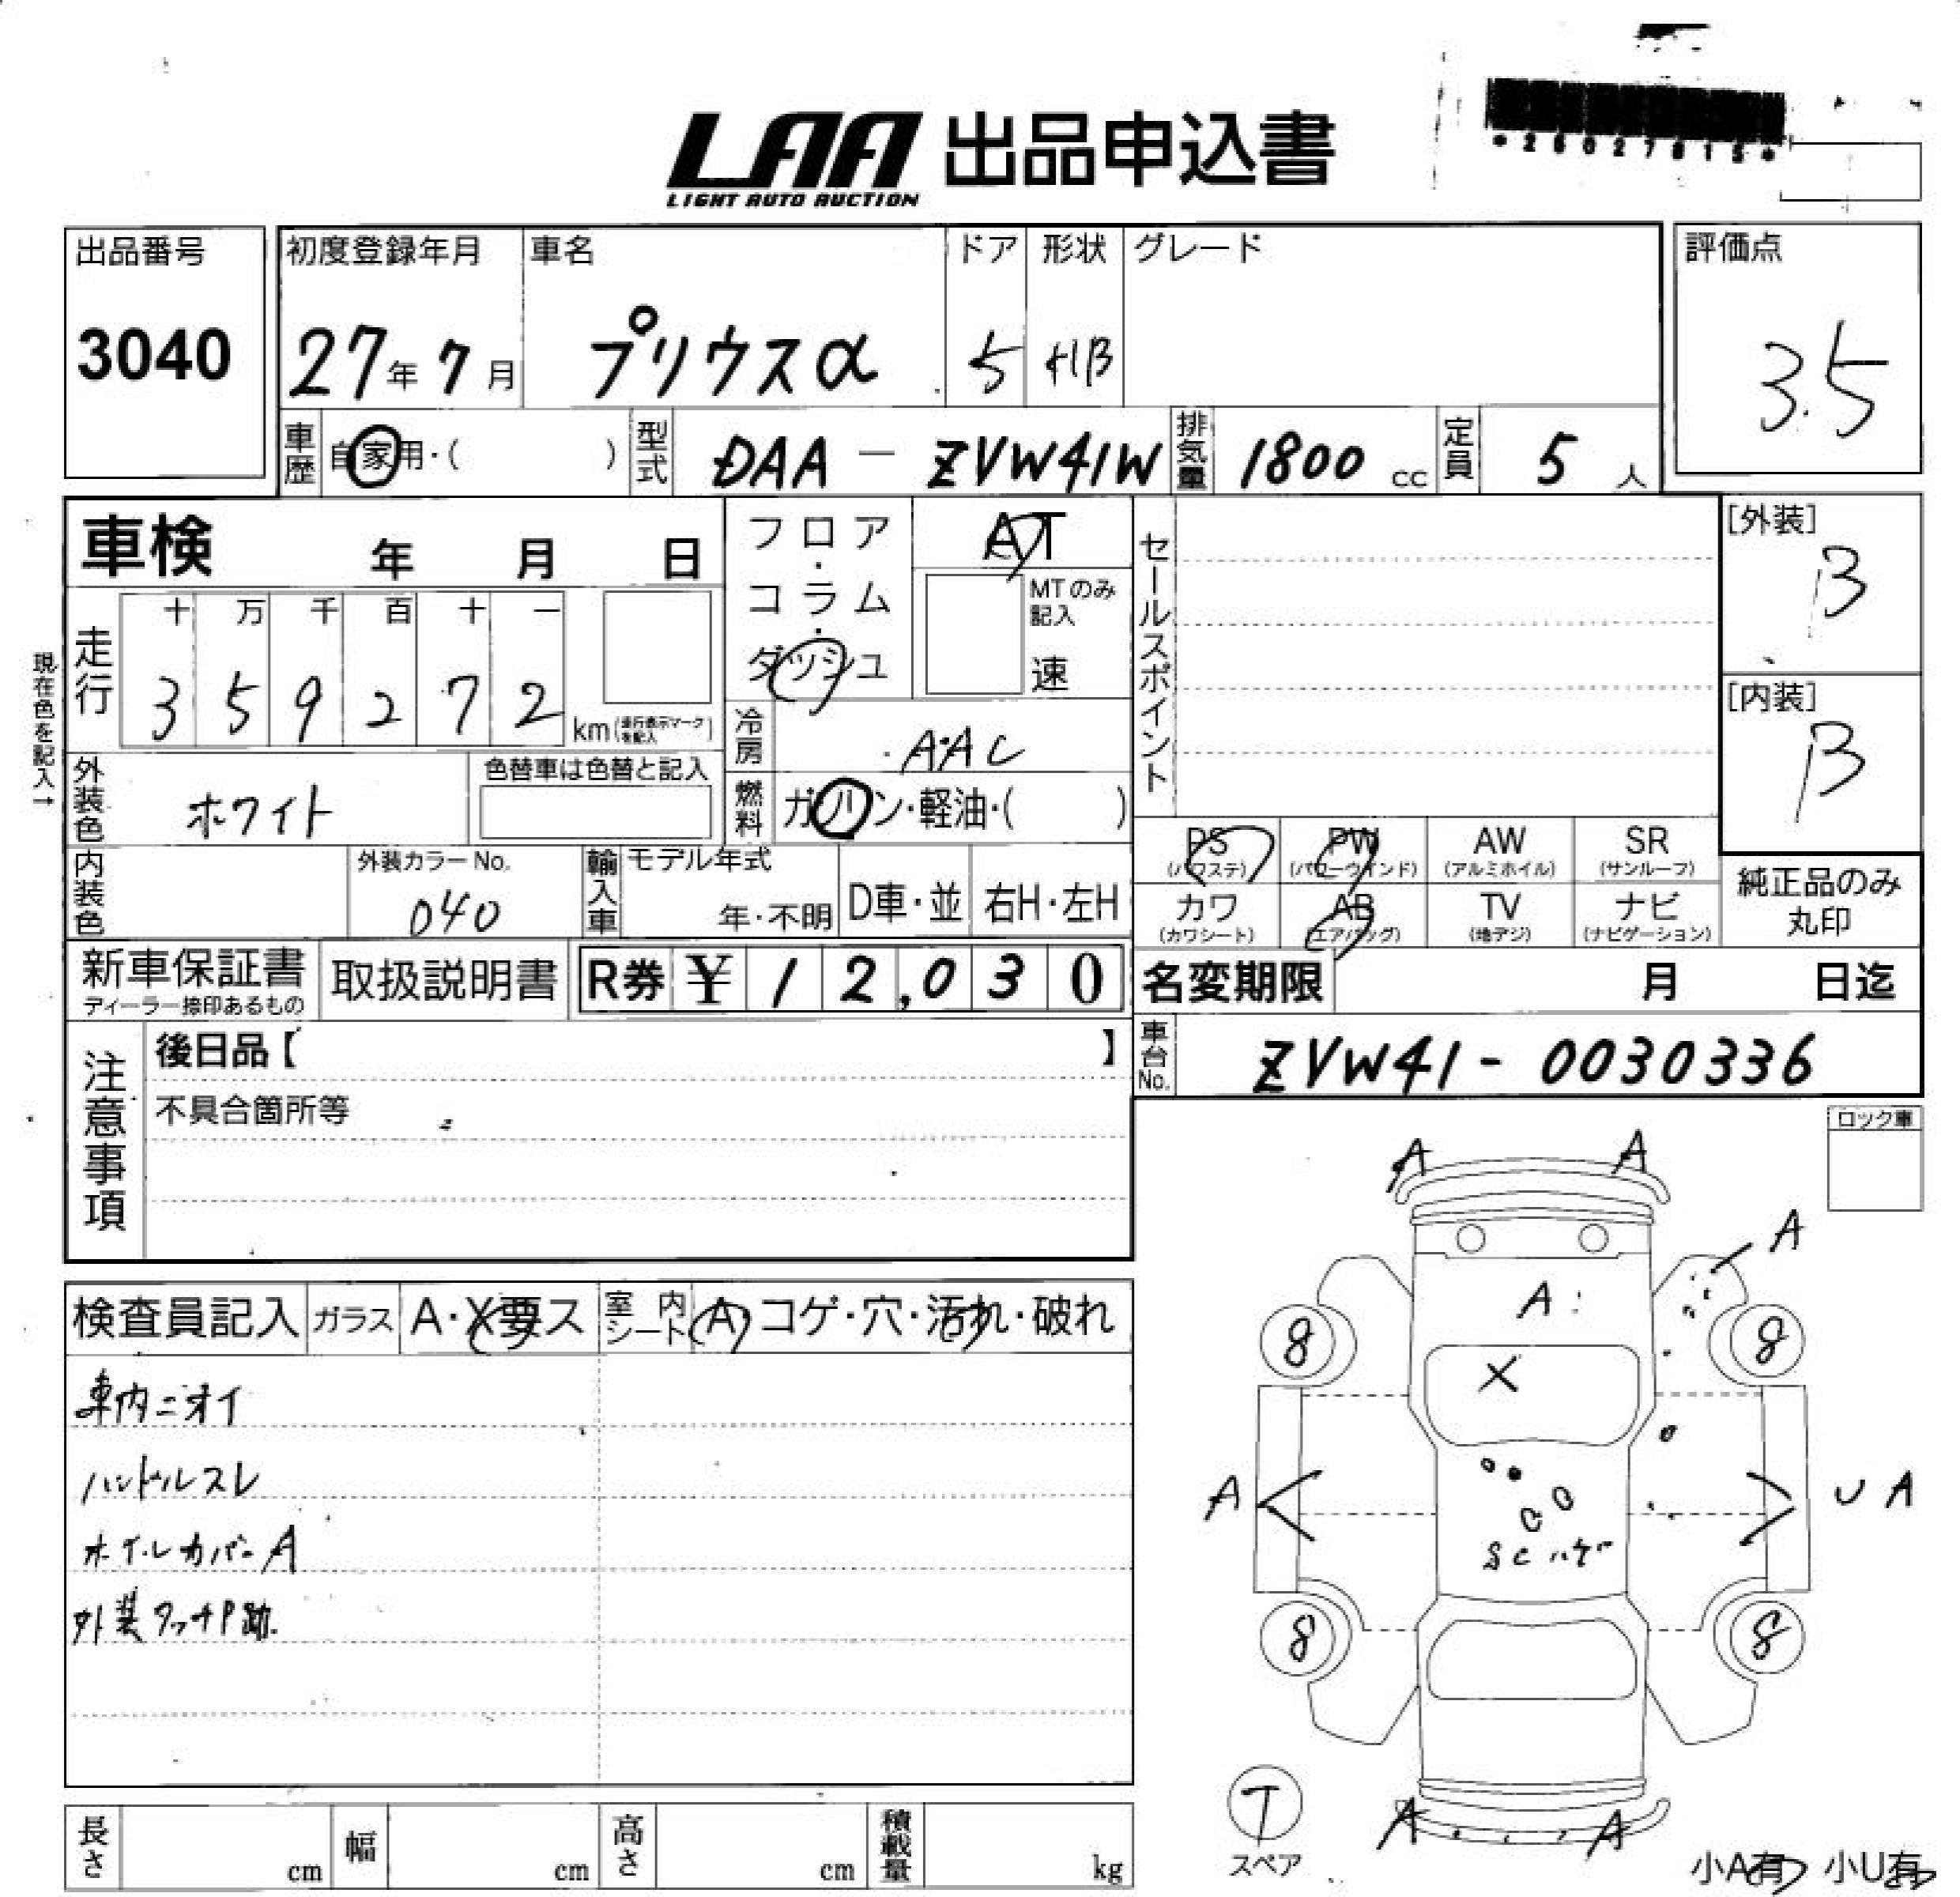 LAA 出品申込書
LIGHT AUTO AUCTION
*26027615*
出品番号
3040
初度登録年月
27年 7月
車名
プリウスα
ドア
5
形状
HB
グレード
評価点
3.5
車歴
自家用・( )
型式
DAA - ZVW41W
排気量
1800 cc
定員
5 人
車検 年 月 日
フロア・コラム・ダッシュ
AT
MTのみ記入
速
セールスポイント
[外装]
B
[内装]
B
現在色を記入→
走行
十 万 千 百 十 一
3 5 9 2 7 2
km (走行表示マークを記入)
冷房
AAC
燃料
ガソリン・軽油・( )
外装色
ホワイト
色替車は色替と記入
内装色
外装カラーNo.
040
輸入車
モデル年式
年・不明
D車・並
右H・左H
PS (パワステ)
PW (パワーウインド)
AW (アルミホイル)
SR (サンルーフ)
カワ (カワシート)
AB (エアバッグ)
TV (地デジ)
ナビ (ナビゲーション)
純正品のみ
丸印
新車保証書
ディーラー捺印あるもの
取扱説明書
R券 ¥ 12,030
名変期限 月 日迄
車台No.
ZVW41-0030336
注意事項
後日品【 】
不具合箇所等
ロック車
検査員記入
ガラス
A・X要ス
室内シート
A・コゲ・穴・汚れ・破れ
車内ニオイ
ハンドルスレ
ホイールカバーA
外装タッチP跡.
A A
A
A
8 8
X
A U A
SCハゲ
8 8
A A
T
スペア
小A有 小U有
長さ cm
幅 cm
高さ cm
積載量 kg